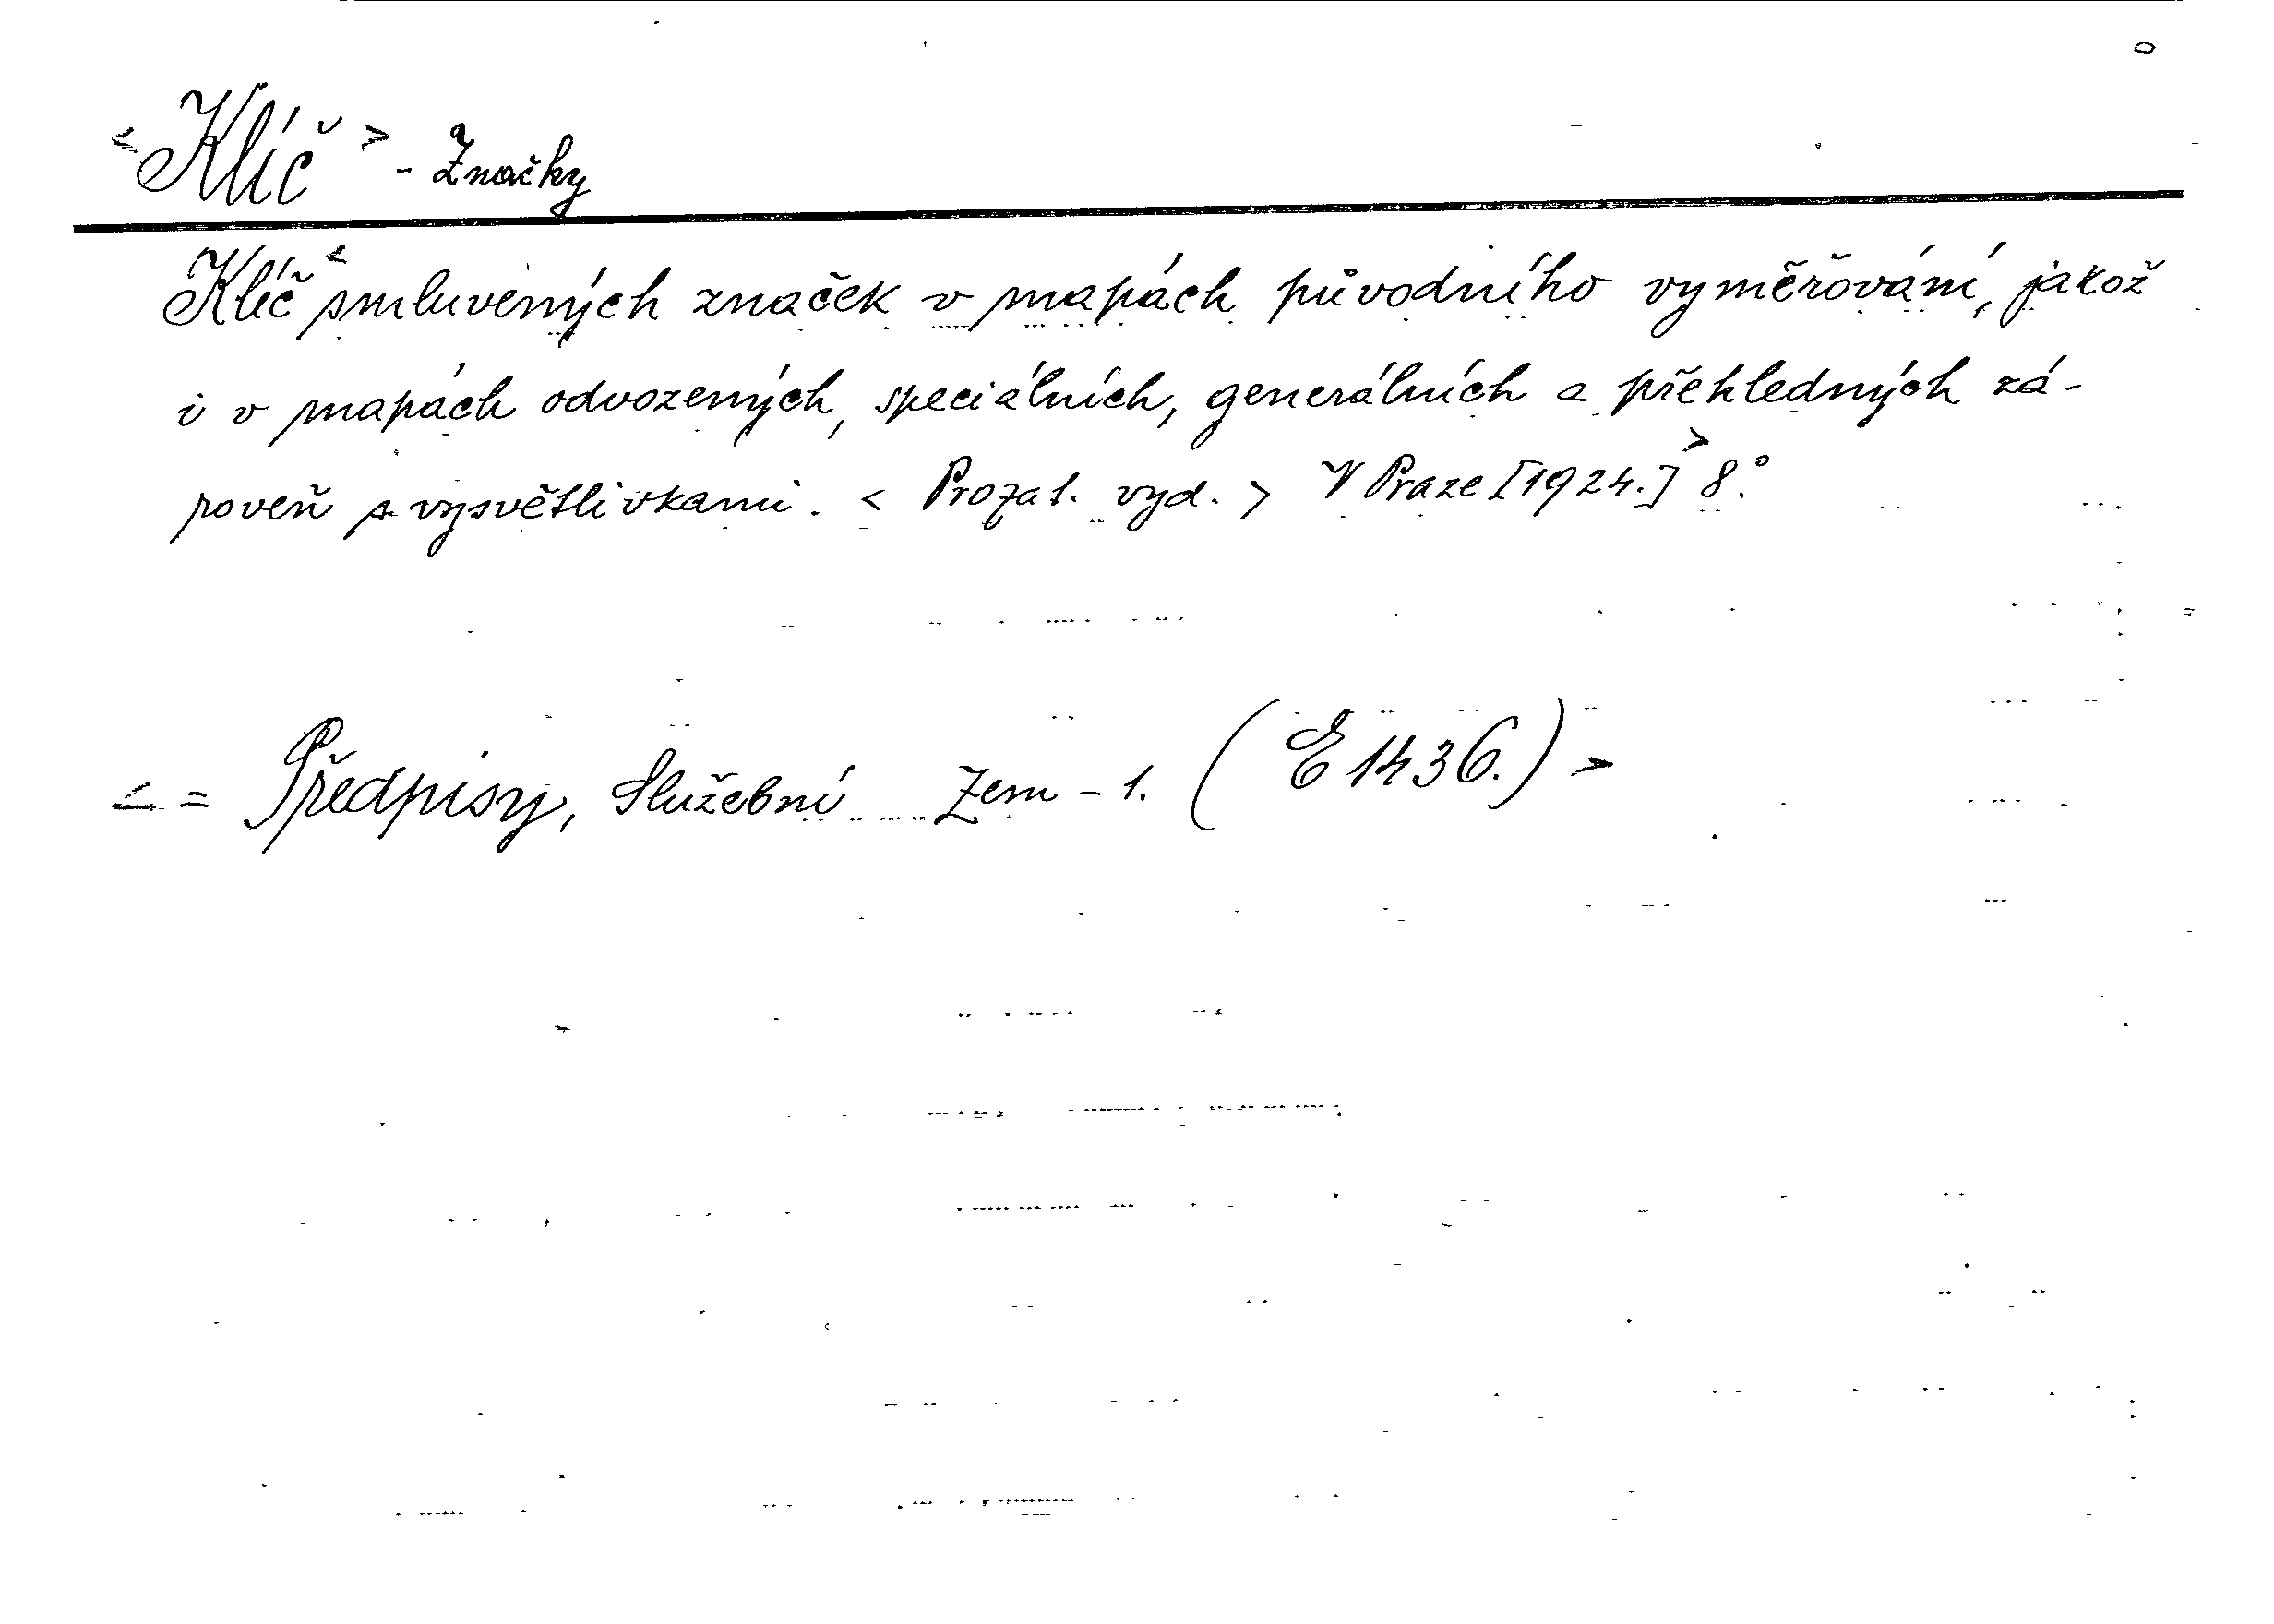 <Klíč> - Značky
Klíč < smluvených značek v mapách původního vyměřování, jakož
i v mapách odvozených, speciálních, generálních a přehledných zá-
roveň s vysvětlivkami. < Prozat. vyd. > V Praze [1924.] > 8.°
< = Předpisy, Služební Zem - 1. (E 1436.) >